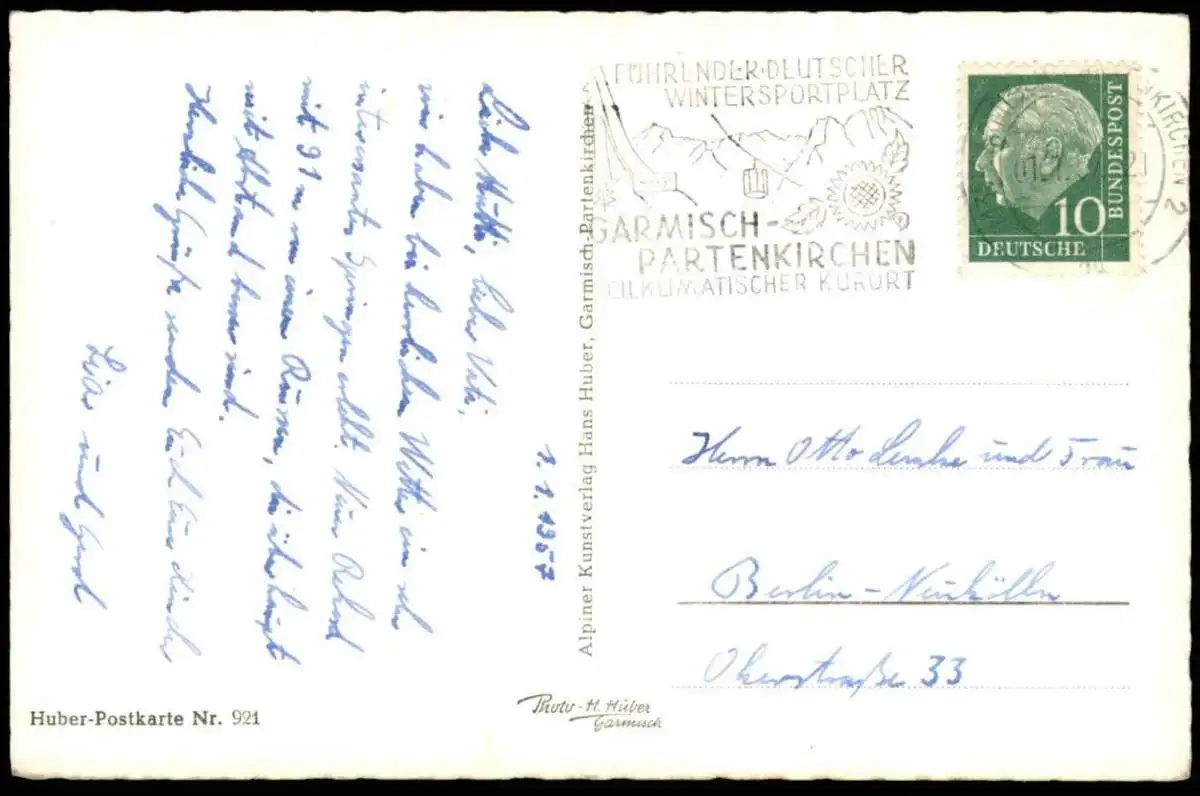 FÜHRENDER·DEUTSCHER
WINTERSPORTPLATZ
GARMISCH-
PARTENKIRCHEN
HEILKLIMATISCHER KURORT
10
DEUTSCHE
BUNDESPOST
1.1.1957
Liebe Mutti, lieber Vati,
wir haben bei herrlichem Wetter ein sehr
interessantes Springen erlebt. Neuer Rekord
mit 91 m von einem Russen, die überhaupt
mit Abstand besser sind.
Herzliche Grüße senden Euch Eure Kinder
und Gerd
Alpiner Kunstverlag Hans Huber, Garmisch-Partenkirchen
Herrn Otto und Frau
Berlin-Neukölln
Okerstraße 33
Huber-Postkarte Nr. 921
Photo-H. Huber
Garmisch